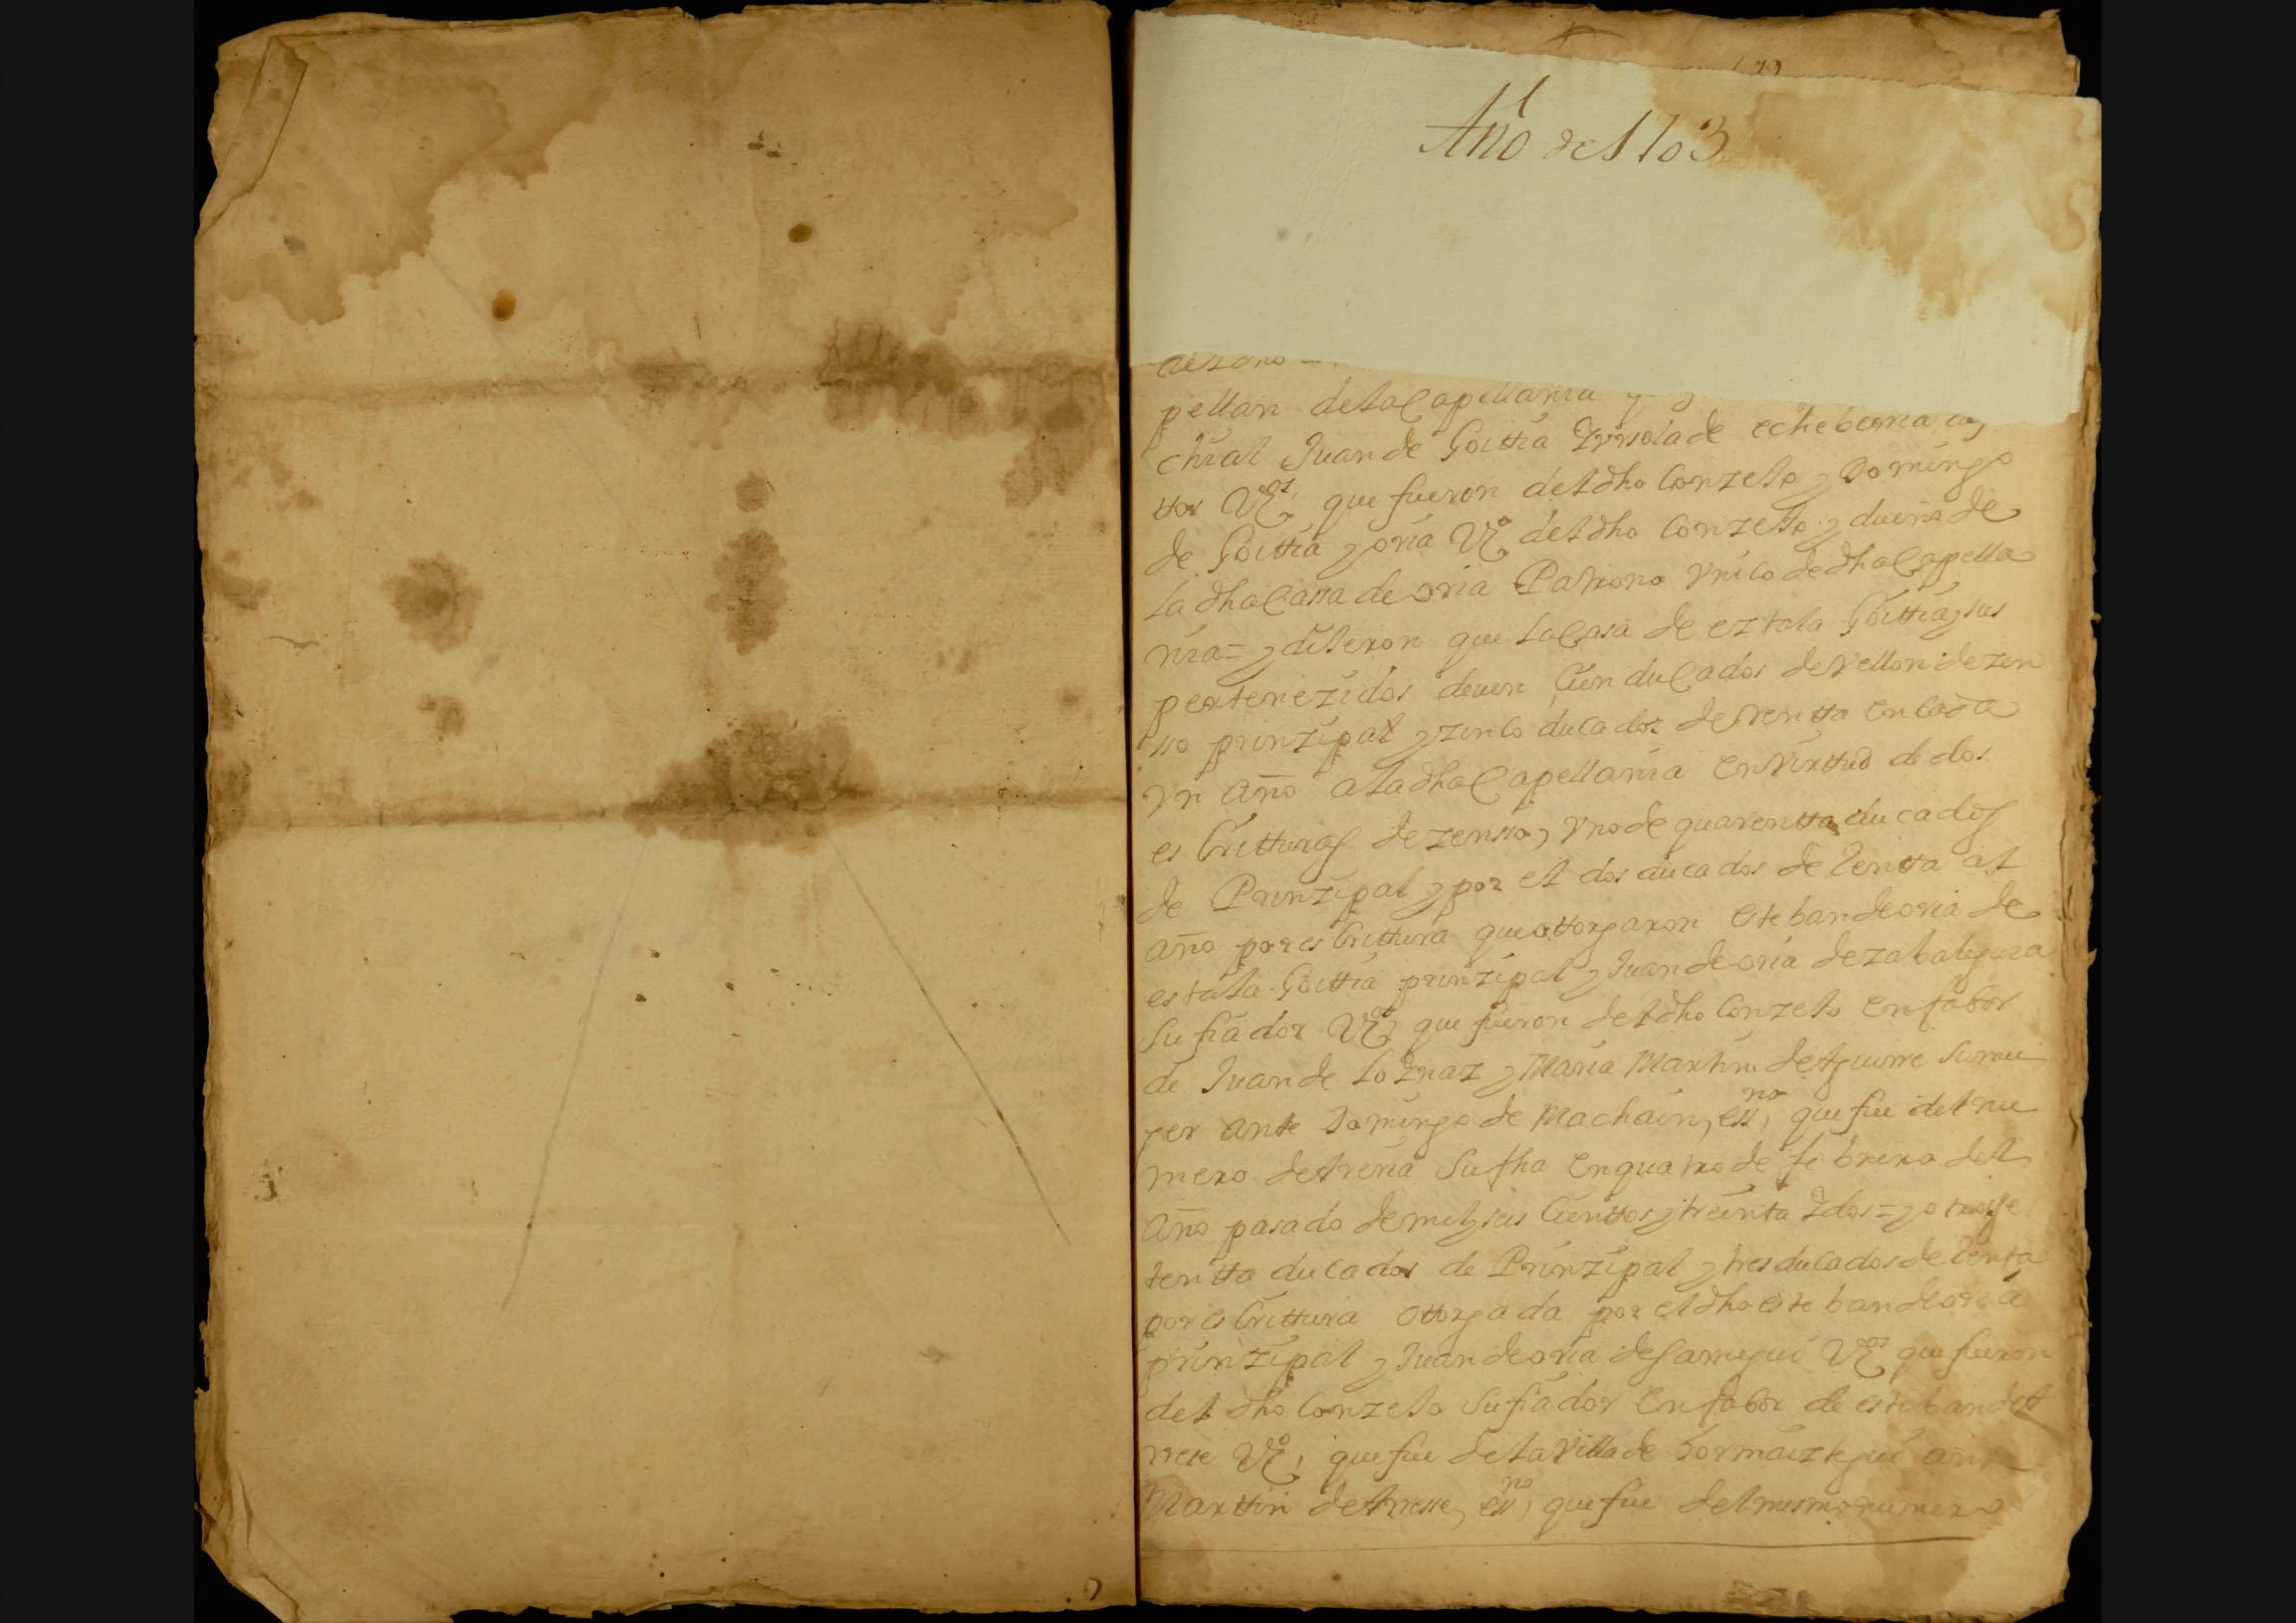 Año de 1703
pellan de la Capellania
chial Juan de Goittia Yrrsola de echeberria
ttos Vºs que fueron del dho Conzejo y Domingo
de Goittia y oria Vº del dho Conzejo y dueño de
la dha Cassa de oria Patrono Vnico de dha Capella
nia = y dijeron que la Casa de eztala Goittia y sus
pertenezidos deuen Cien ducados de Vellon de zen
sso prinzipal y zinco ducados de Rentta en Cada
Vn año a la dha Capellania en Virttud de dos
es Critturas de zensso, Vno de quarentta ducados
de Prinzipal y por el dos ducados de Rentta al
año por es Crittura que ottorgaron esteban de oria de
estala Goittia prinzipal y Juan de oria de zabalegura
su fiador Vºs que fueron del dho Conzejo en fabor
de Juan de loynaz y Maria Martin de Aguirre su mu
ger ante Domingo de Machain, essno, que fue del nu
mero de Areria su fha en quatro de febrero del
año pasado de mil y seis Cienttos y treinta Y dos = y otros se
sentta ducados de Prinzipal y tres ducados de Renta
por es Crittura ottorgada por el dho esteban de oria
prinzipal y Juan de oria de Sarregui Vºs que fueron
del dho Conzejo su fiador en fabor de esteban de A
rrese Vº, que fue de la Villa de hormaiztegui ante
Marttin de Arresse, essno, que fue del mismo numero